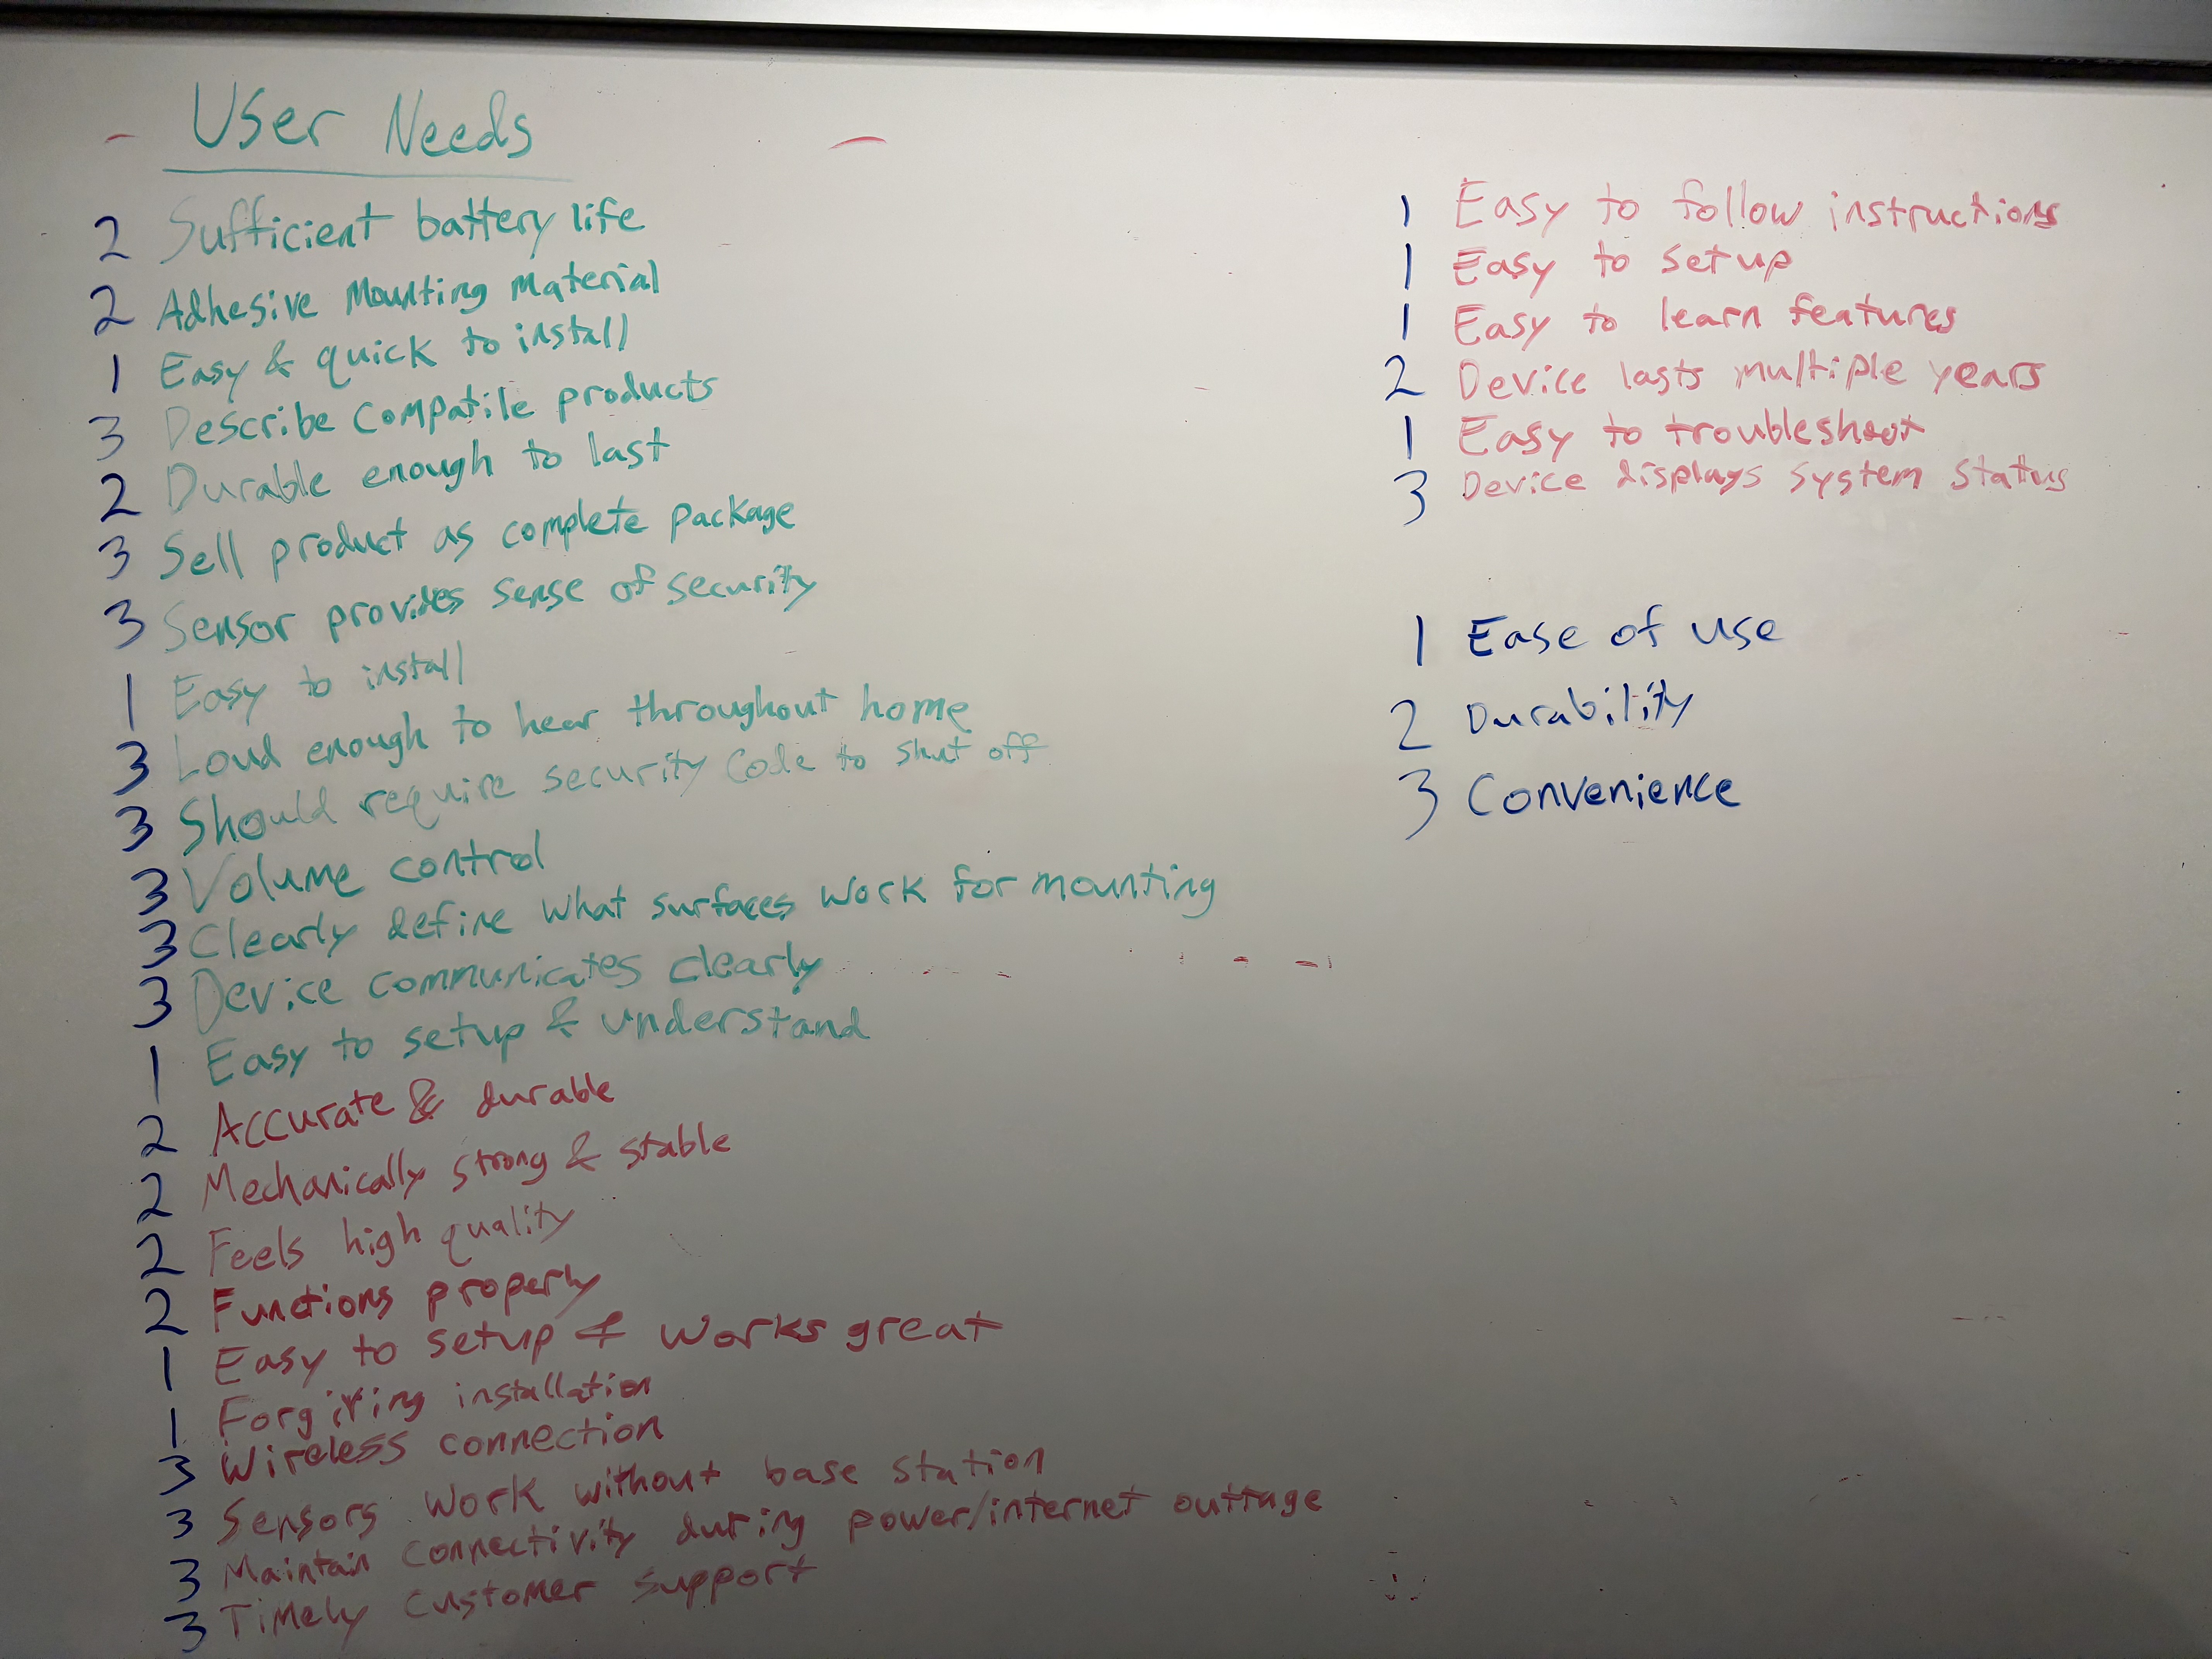 User Needs
2 Sufficient battery life
2 Adhesive Mounting Material
1 Easy & quick to install
3 Describe compatile products
2 Durable enough to last
3 Sell product as complete package
3 Sensor provides sense of security
1 Easy to install
3 Loud enough to hear throughout home
3 Should require security code to shut off
3 Volume control
3 Clearly define what surfaces work for mounting
3 Device communicates clearly
1 Easy to setup & understand
2 Accurate & durable
2 Mechanically strong & stable
2 Feels high quality
2 Functions properly
1 Easy to setup & works great
1 Forgiving installation
3 Wireless connection
3 Sensors work without base station
3 Maintain connectivity during power/internet outtage
3 Timely customer support
1 Easy to follow instructions
1 Easy to setup
1 Easy to learn features
2 Device lasts multiple years
1 Easy to troubleshoot
3 Device displays system status
1 Ease of use
2 Durability
3 Convenience